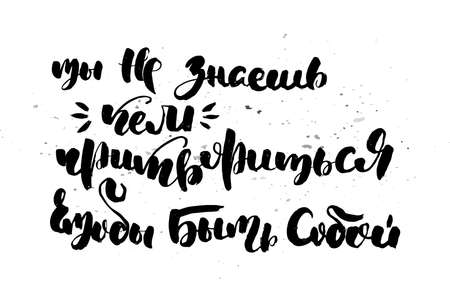 ты Не Знаешь
кем
притвориться
Чтобы Быть Собой